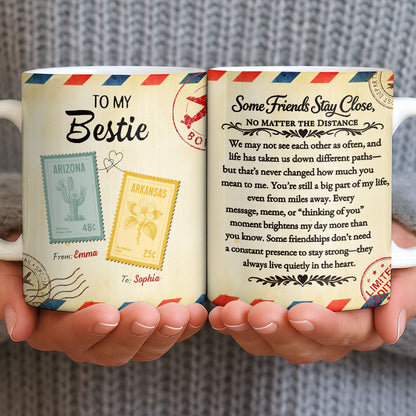 TO MY
Bestie
ARIZONA
48¢
ARKANSAS
25¢
From: Emma
To: Sophia
Some Friends Stay Close,
NO MATTER THE DISTANCE
We may not see each other as often, and
life has taken us down different paths—
but that's never changed how much you
mean to me. You're still a big part of my life,
even from miles away. Every
message, meme, or “thinking of you”
moment brightens my day more than
you know. Some friendships don't need
a constant presence to stay strong—they
always live quietly in the heart.